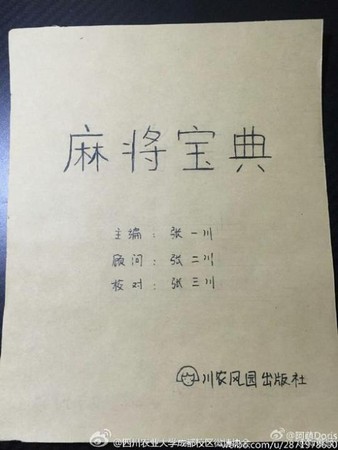 麻将宝典
主编：张一川
顾问：张二川
核对：张三川
川农风园出版社
@四川农业大学成都校区微博协会
weibo.com/u/2871978680